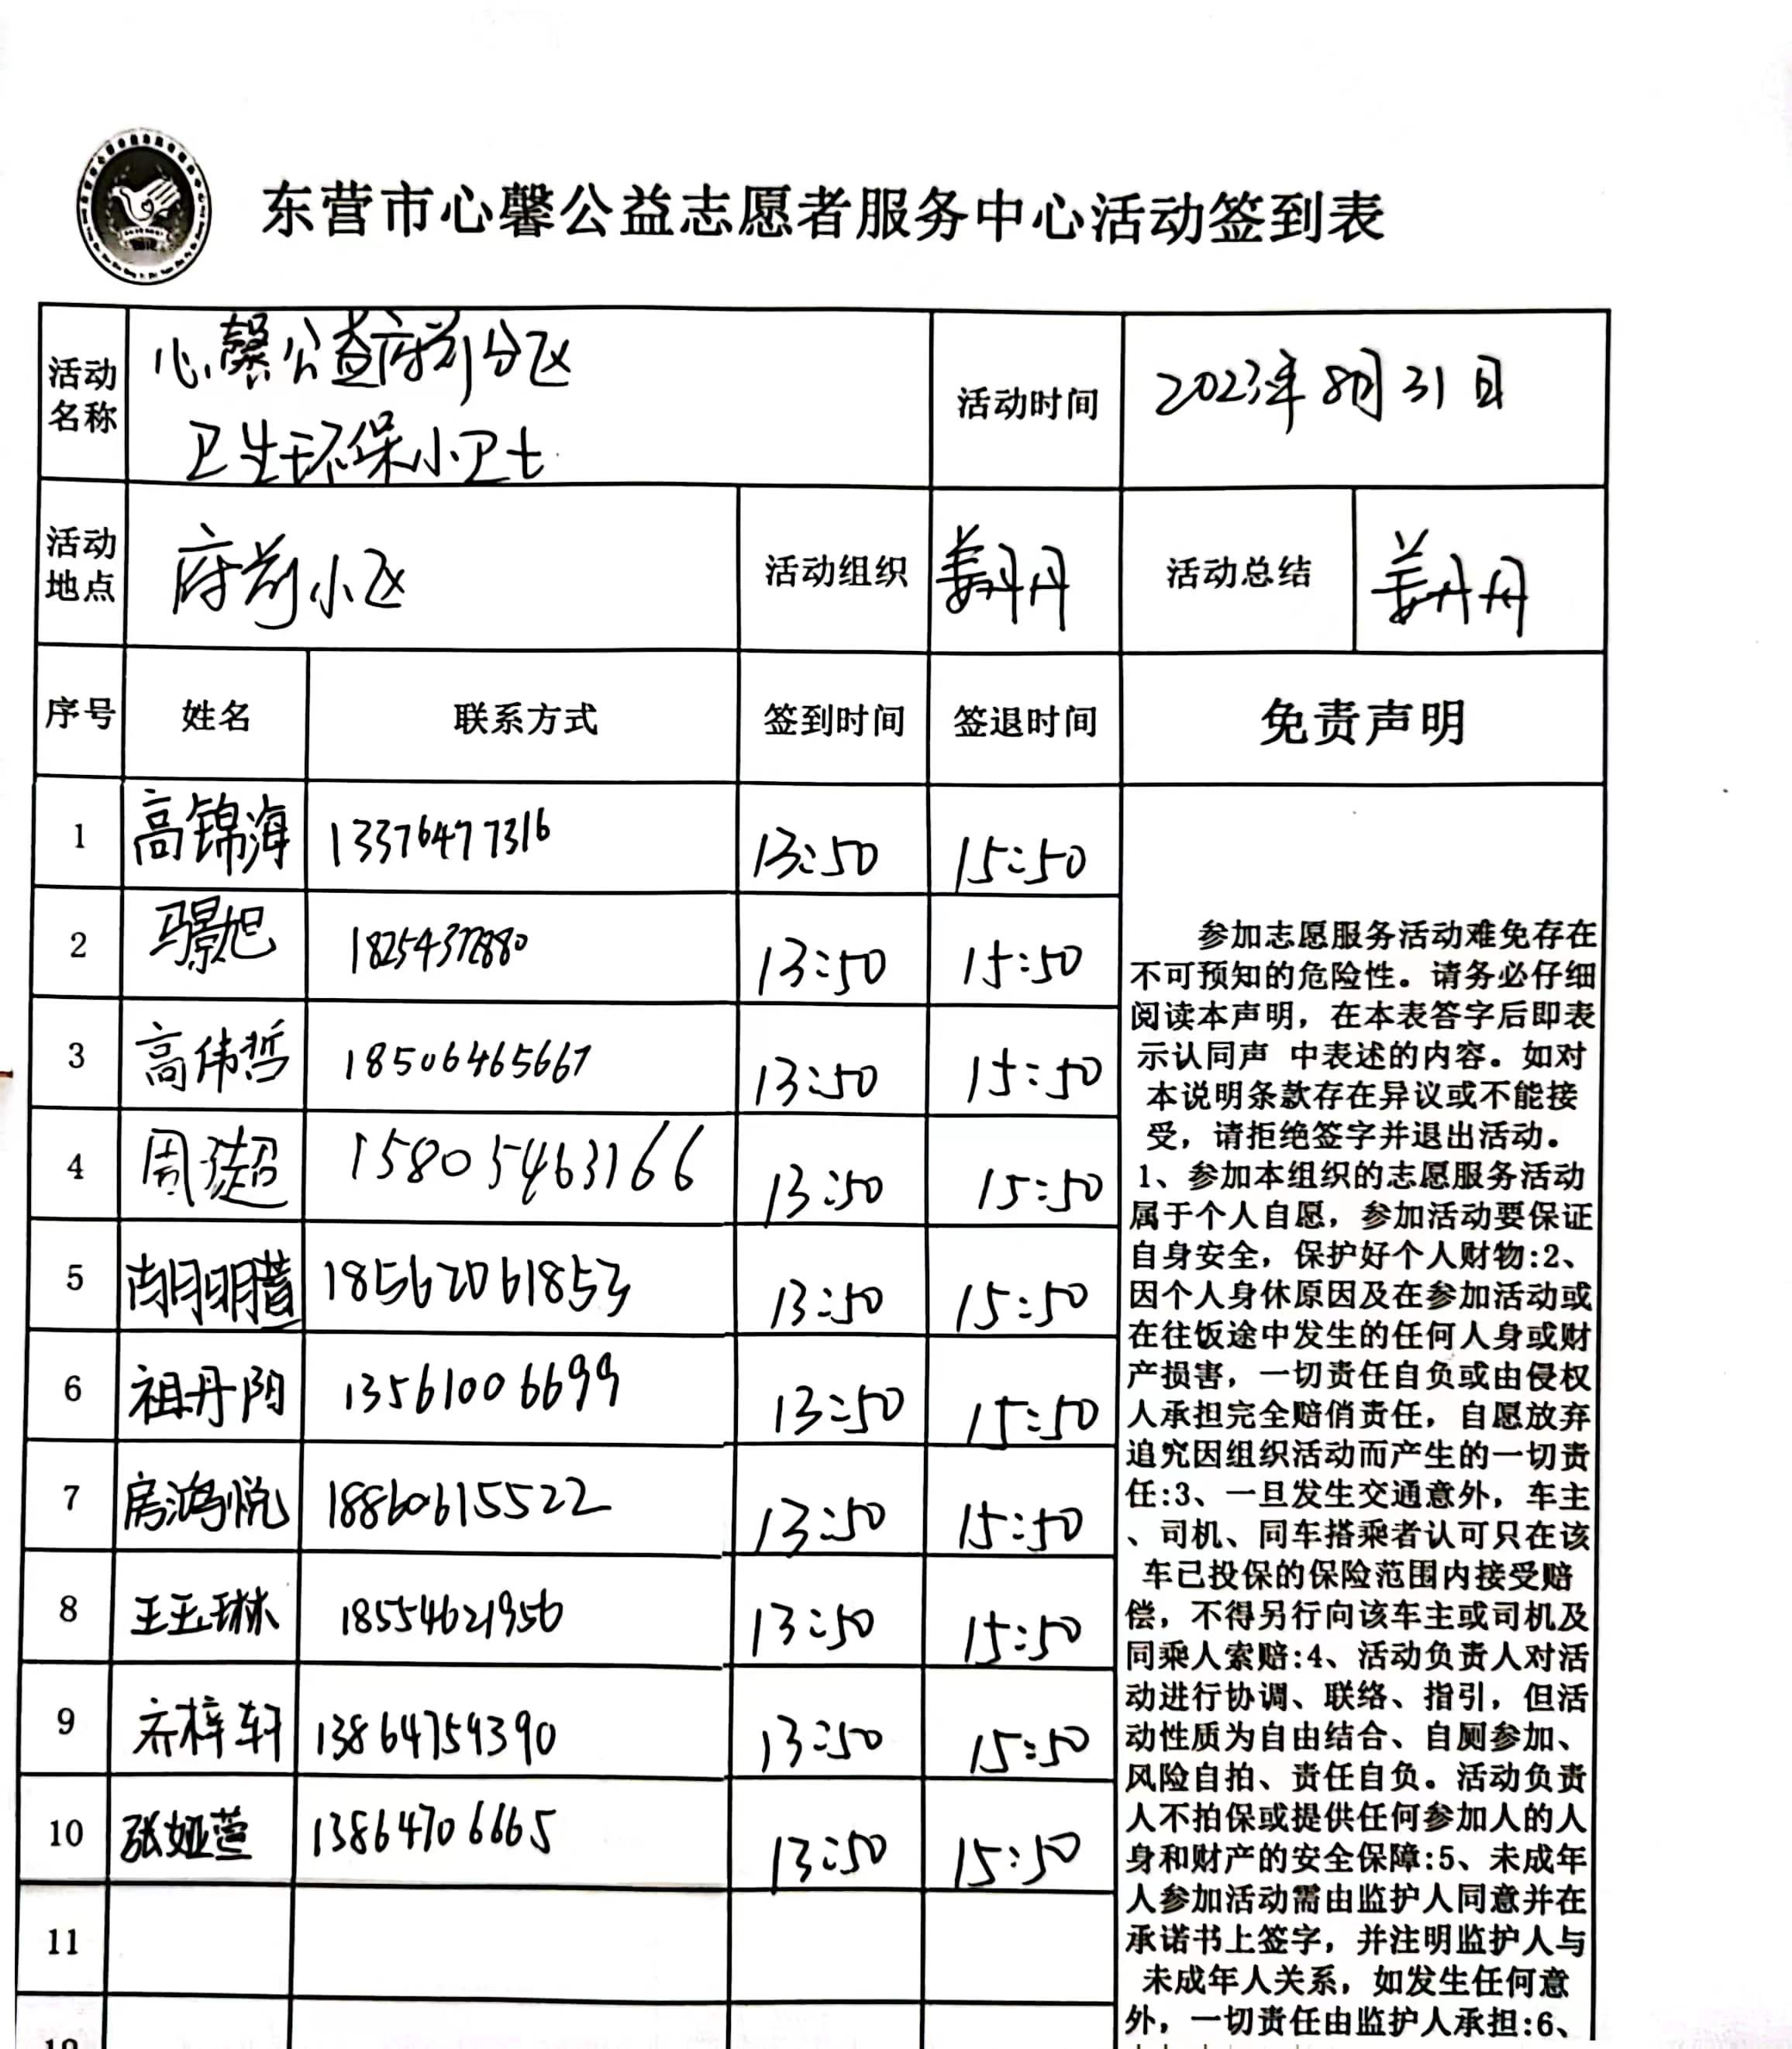 东营市心馨公益志愿者服务中心活动签到表
活动名称
心馨公益府前分区
卫生环保小卫士
活动时间
2023年8月31日
活动地点
府前小区
活动组织
姜丹丹
活动总结
姜丹丹
序号 姓名 联系方式 签到时间 签退时间 免责声明
1 高锦海 13376477316 13:50 15:50
2 马景旭 18254372880 13:50 15:50
3 高伟哲 18506465667 13:50 15:50
4 周 超 15805463166 13:50 15:50
5 18562061853 13:50 15:50
6 祖丹阳 13561006699 13:50 15:50
7 房鸿悦 18860615522 13:50 15:50
8 王玉琳 18554621956 13:50 15:50
9 乔梓轩 13864759390 13:50 15:50
10 张娅萱 13864706665 13:50 15:50
11
参加志愿服务活动难免存在
不可预知的危险性。请务必仔细
阅读本声明，在本表答字后即表
示认同声 中表述的内容。如对
本说明条款存在异议或不能接
受，请拒绝签字并退出活动。
1、参加本组织的志愿服务活动
属于个人自愿，参加活动要保证
自身安全，保护好个人财物:2、
因个人身休原因及在参加活动或
在往饭途中发生的任何人身或财
产损害，一切责任自负或由侵权
人承担完全赔俏责任，自愿放弃
追究因组织活动而产生的一切责
任:3、一旦发生交通意外，车主
、司机、同车搭乘者认可只在该
车已投保的保险范围内接受赔
偿，不得另行向该车主或司机及
同乘人索赔:4、活动负责人对活
动进行协调、联络、指引，但活
动性质为自由结合、自厕参加、
风险自拍、责任自负。活动负责
人不拍保或提供任何参加人的人
身和财产的安全保障:5、未成年
人参加活动需由监护人同意并在
承诺书上签字，并注明监护人与
未成年人关系，如发生任何意
外，一切责任由监护人承担:6、